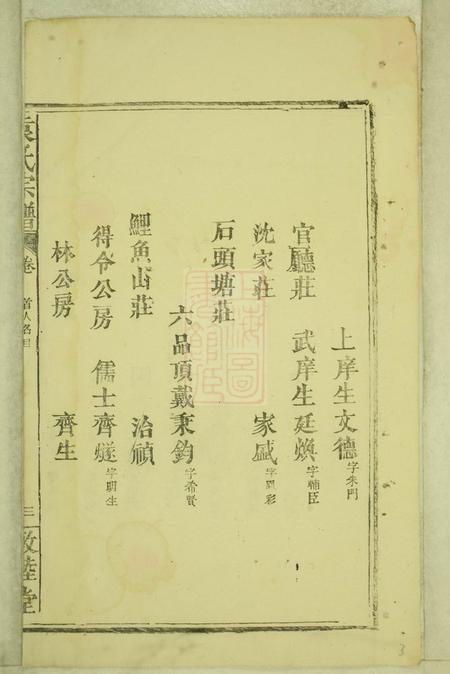 上庠生文德字朱門
官廳莊 武庠生廷煥字輔臣
沈家莊 家盛字彩
石頭塘莊
六品頂戴秉鈞字希賢
鯉魚山莊 治頎
得令公房 儒士齊燧字明生
林公房 齊生
袁氏宗譜 卷首 人名目 三 敦睦堂
上海圖書館藏
3